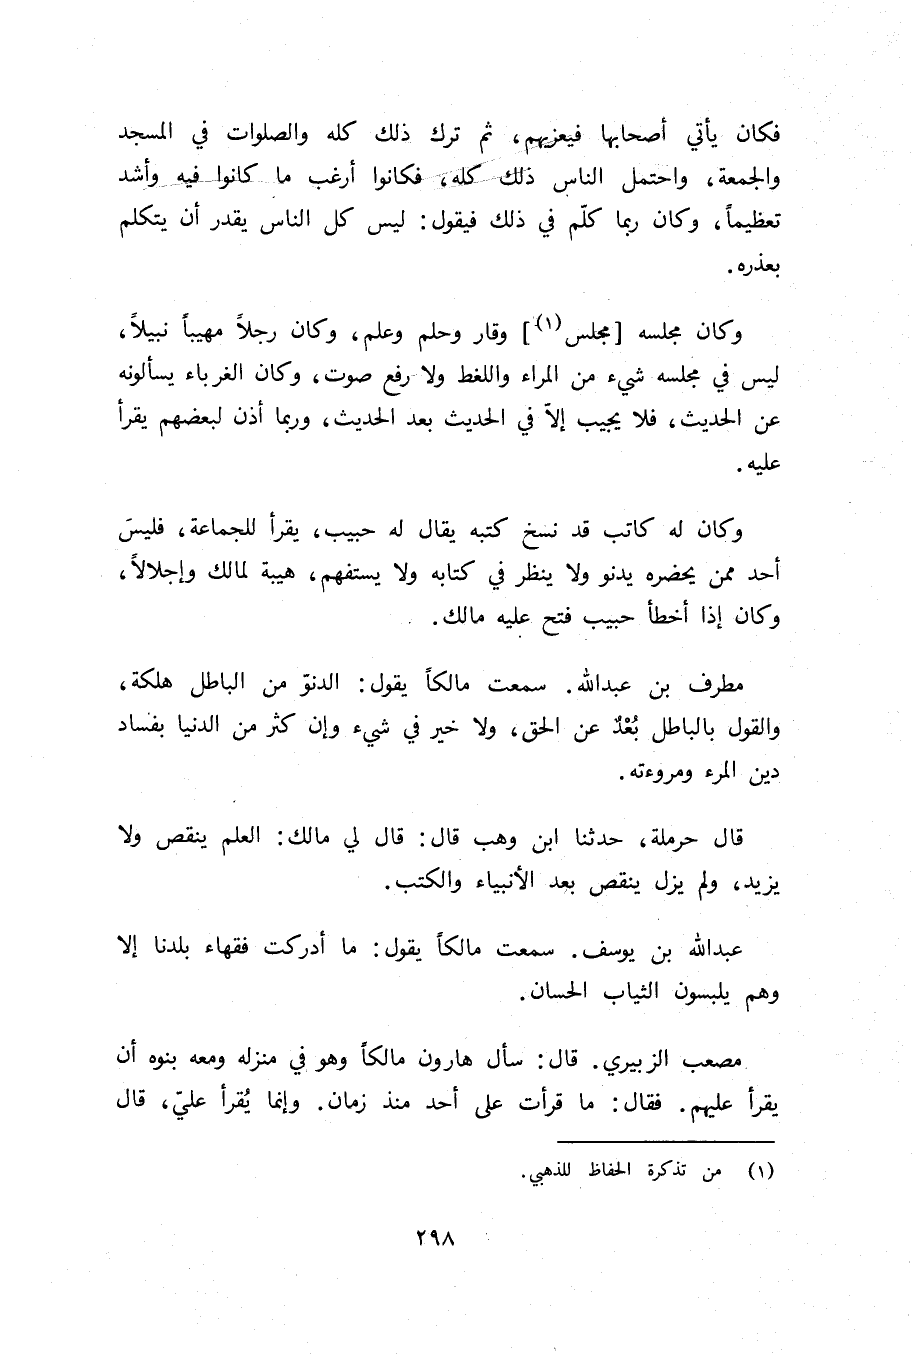 فكان يأتي أصحابها فيعزيهم، ثم ترك ذلك كله والصلوات في المسجد
والجمعة، واحتمل الناس ذلك كله، فكانوا أرغب ما كانوا فيه وأشد
تعظيماً، وكان ربما كلّم في ذلك فيقول: ليس كل الناس يقدر أن يتكلم
بعذره.
وكان مجلسه [مجلس(١)] وقار وحلم وعلم، وكان رجلاً مهيباً نبيلاً،
ليس في مجلسه شيء من المراء واللغط ولا رفع صوت، وكان الغرباء يسألونه
عن الحديث، فلا يجيب إلاّ في الحديث بعد الحديث، وربما أذن لبعضهم يقرأ
عليه.
وكان له كاتب قد نسخ كتبه يقال له حبيب، يقرأ للجماعة، فليسَ
أحد ممن يحضره يدنو ولا ينظر في كتابه ولا يستفهم، هيبة لمالك وإجلالاً،
وكان إذا أخطأ حبيب فتح عليه مالك.
مطرف بن عبدالله. سمعت مالكاً يقول: الدنوّ من الباطل هلكة،
والقول بالباطل بُعْدٌ عن الحق، ولا خير في شيء وإن كثر من الدنيا بفساد
دين المرء ومروءته.
قال حرملة، حدثنا ابن وهب قال: قال لي مالك: العلم ينقص ولا
يزيد، ولم يزل ينقص بعد الأنبياء والكتب.
عبدالله بن يوسف. سمعت مالكاً يقول: ما أدركت فقهاء بلدنا إلا
وهم يلبسون الثياب الحسان.
مصعب الزبيري. قال: سأل هارون مالكاً وهو في منزله ومعه بنوه أن
يقرأ عليهم. فقال: ما قرأت على أحد منذ زمان. وإنما يُقرأ عليّ، قال
(١) من تذكرة الحفاظ للذهبي.
٢٩٨